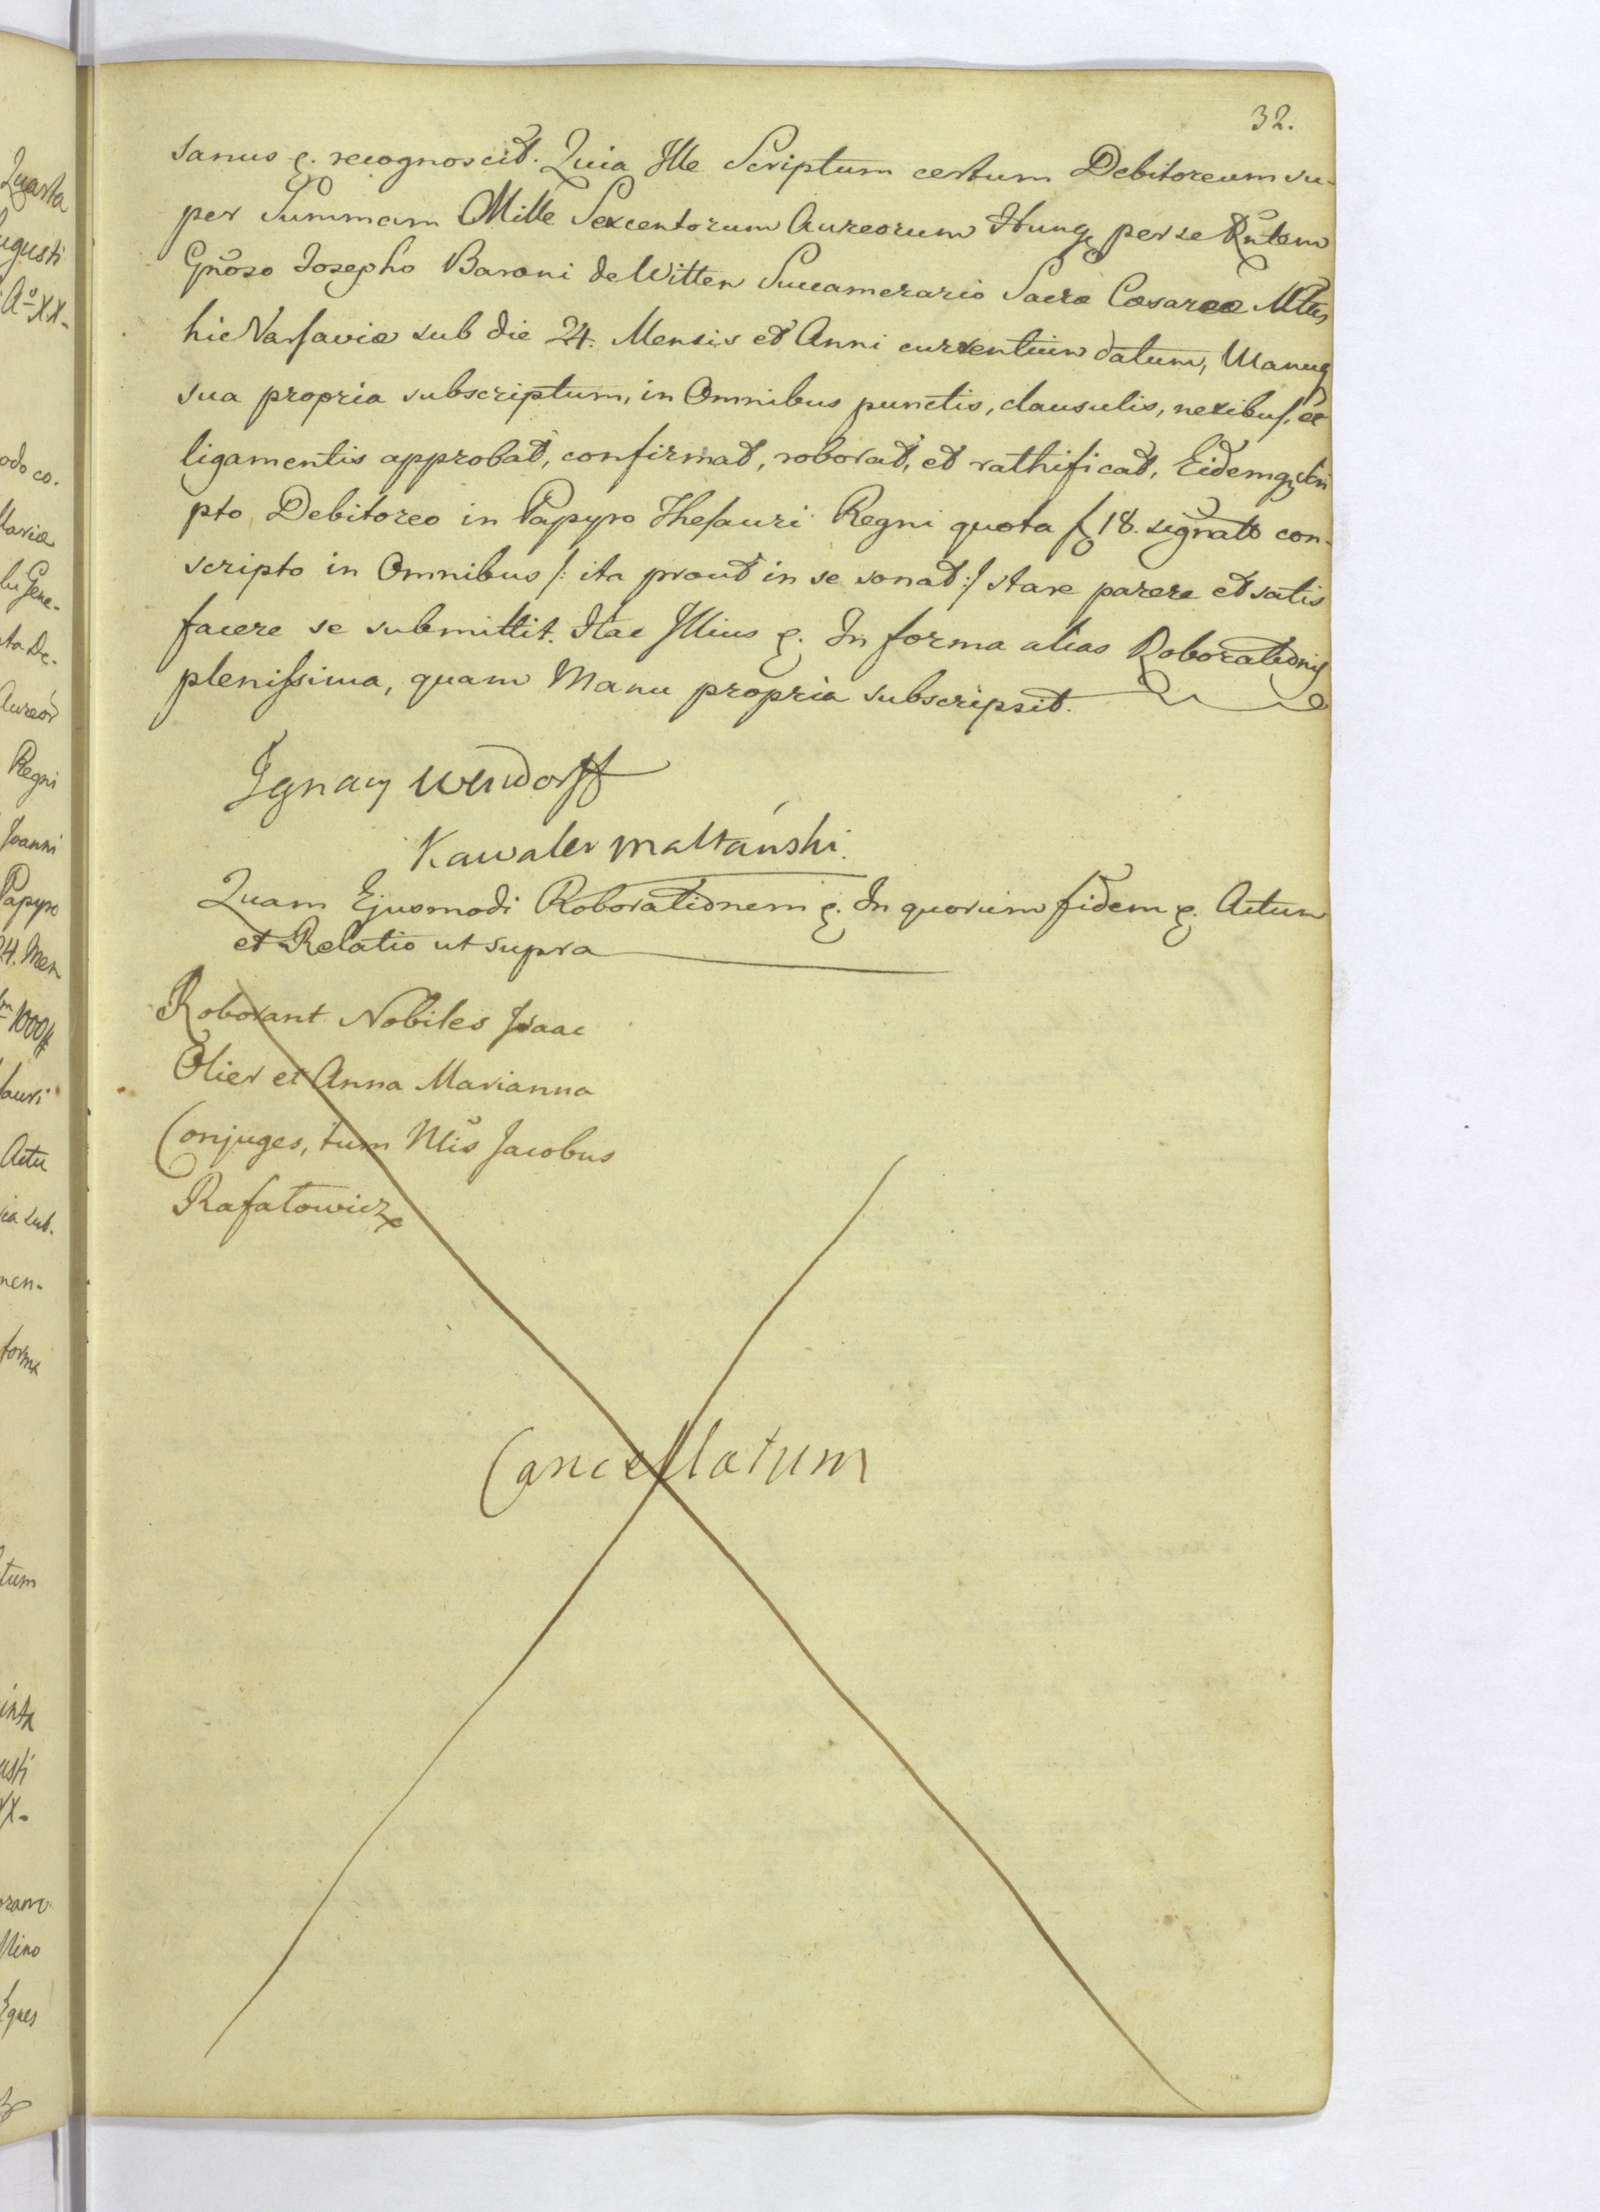 32.
sanus &. recognoscit. Quia Ille Scriptum certum Debitoreum su-
per Summam Mille Sexcentorum Aureorum Hung. per se Rñtem
Gnõso Josepho Baroni de Witten Succamerario Sacræ Cæsareæ Mttis
hic Varsaviæ sub die 24. Mensis et Anni currentium datum, Manuq
sua propria subscriptum, in Omnibus punctis, clausulis, nexibus, et
ligamentis approbat, confirmat, roborat, et rathificat, Eidemq Scri
pto Debitoreo in Papyro Thesauri Regni quota 18. signato con-
scripto in Omnibus /: ita prout in se sonat :/ stare parere et satis
facere se submittit. Hac Illius &. In forma alias Roborationis
plenissima, quam Manu propria subscripsit.
Ignacy
Kawaler maltański.
Quam Ejusmodi Roborationem &. In quorum fidem &. Actum
et Relatio ut supra
Roborant Nobiles Isaac
Olier et Anna Marianna
Conjuges, tum Nlis Jacobus
Rafałowicz
Cancellatum
Quarta
ugusti
Aº XX-
odo co.
lu Gene-
ta De-
Aureor
Regni
Joanni
Papyro
24. Men
1000
auri
Actu
ia sub.
men-
forma
tum
inta
usti
XX-